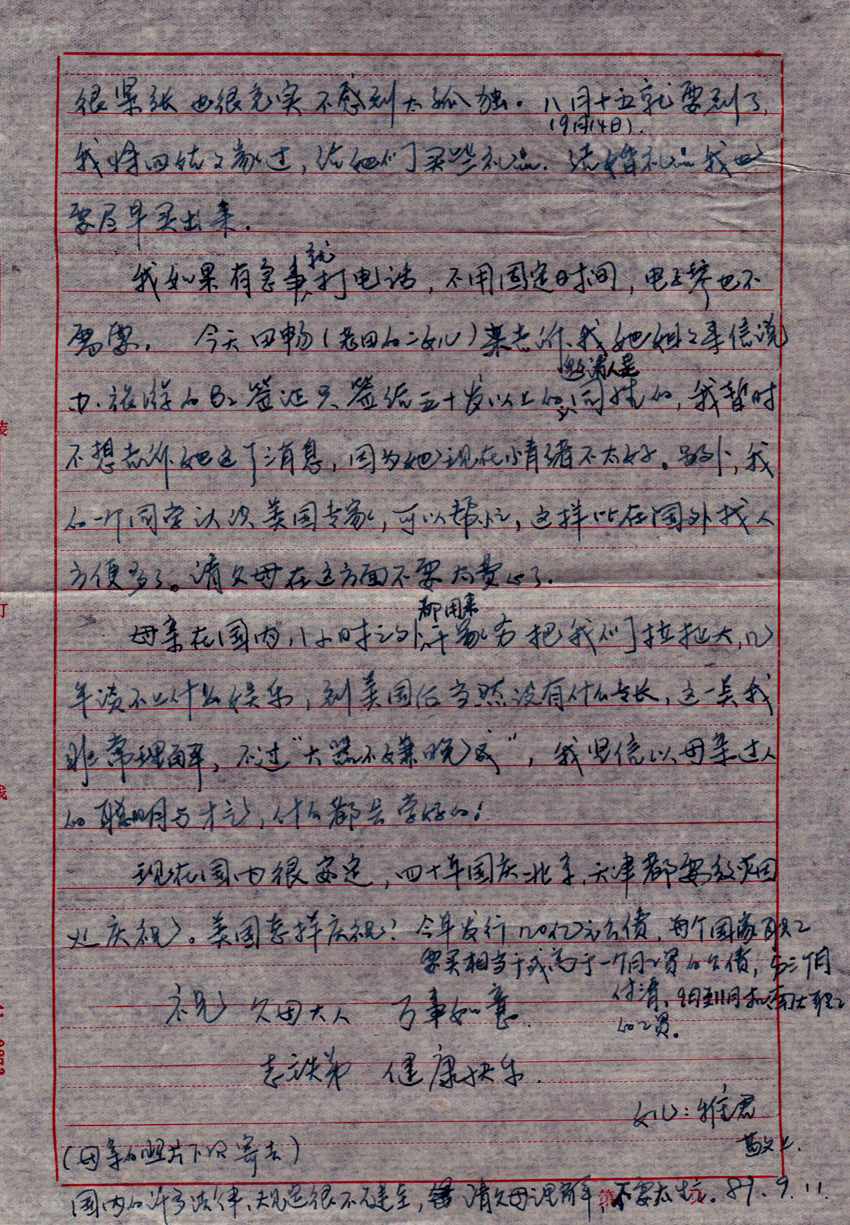 很紧张也很充实不感到太孤独。八月十五就要到了,
(9月14日).
我将回姑姑家过,给她们买些礼品.结婚礼品我也
要尽早买出来.
就
我如果有急事打电话,不用固定时间,电
也不
需要。今天田畅(老田的二女儿)来告诉我她姐姐来信说
邀请人是
办旅游的B2签证只签给五十岁以上的同姓的,我暂时
不想告诉她这个消息,因为她现在情绪不太好。另外,我
的一个同学认识美国专家,可以帮忙,这样比在国外找人
方便多了。请父母在这方面不要太费心了.
都用来
母亲在国内,八小时之外干家务把我们拉扯大,几
年谈不上什么娱乐,到美国后当然没有什么专长,这一点我
非常理解,不过“大器不嫌晚成”,我坚信以母亲过人
的聪明与才 ,什么都会学好的!
现在国内很安定,四十年国庆北京,天津都要放 国
庆祝。美国怎样庆祝?今年发行 亿元公债,每个国家职工
要买相当于或高于一个月工资的公债,分三个月
付清,9月到11月扣 大职工
的工资。
祝 父母大人 万事如意.
弟 健康快乐.
女儿:雅君
敬上.
(母亲的照片下次寄去)
国内的许多法律、规定很不健全,请父母谅解 不要太 . 89.9.11.